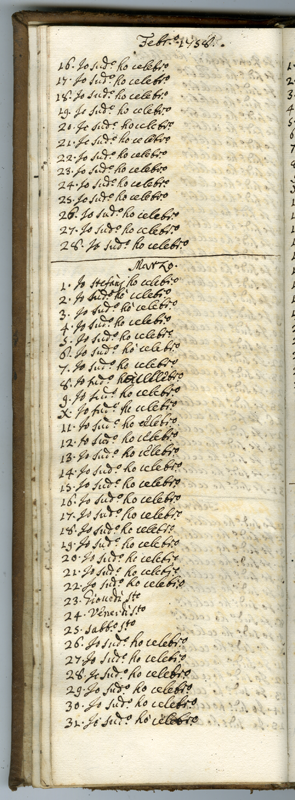 Febr.º 1758.
16. Io sud.º ho celebr.º
17. Io sud.º ho celebr.º
18. Io sud.º ho celebr.º
19. Io sud.º ho celebr.º
20. Io sud.º ho celebr.º
21. Io sud.º ho celebr.º
22. Io sud.º ho celebr.º
23. Io sud.º ho celebr.º
24. Io sud.º ho celebr.º
25. Io sud.º ho celebr.º
26. Io sud.º ho celebr.º
27. Io sud.º ho celebr.º
28. Io sud.º ho celebr.º
Marzo.
1. Io Stefani ho celebr.º
2. Io sud.º ho celebr.º
3. Io sud.º ho celebr.º
4. Io sud.º ho celebr.º
5. Io sud.º ho celebr.º
6. Io sud.º ho celebr.º
7. Io sud.º ho celebr.º
8. Io sud.º ho celebr.º
9. Io sud.º ho celebr.º
X. Io sud.º ho celebr.º
11. Io sud.º ho celebr.º
12. Io sud.º ho celebr.º
13. Io sud.º ho celebr.º
14. Io sud.º ho celebr.º
15. Io sud.º ho celebr.º
16. Io sud.º ho celebr.º
17. Io sud.º ho celebr.º
18. Io sud.º ho celebr.º
19. Io sud.º ho celebr.º
20. Io sud.º ho celebr.º
21. Io sud.º ho celebr.º
22. Io sud.º ho celebr.º
23. Giovedì Sto
24. Venerdì Sto
25. Sabbº Sto
26. Io sud.º ho celebr.º
27. Io sud.º ho celebr.º
28. Io sud.º ho celebr.º
29. Io sud.º ho celebr.º
30. Io sud.º ho celebr.º
31. Io sud.º ho celebr.º